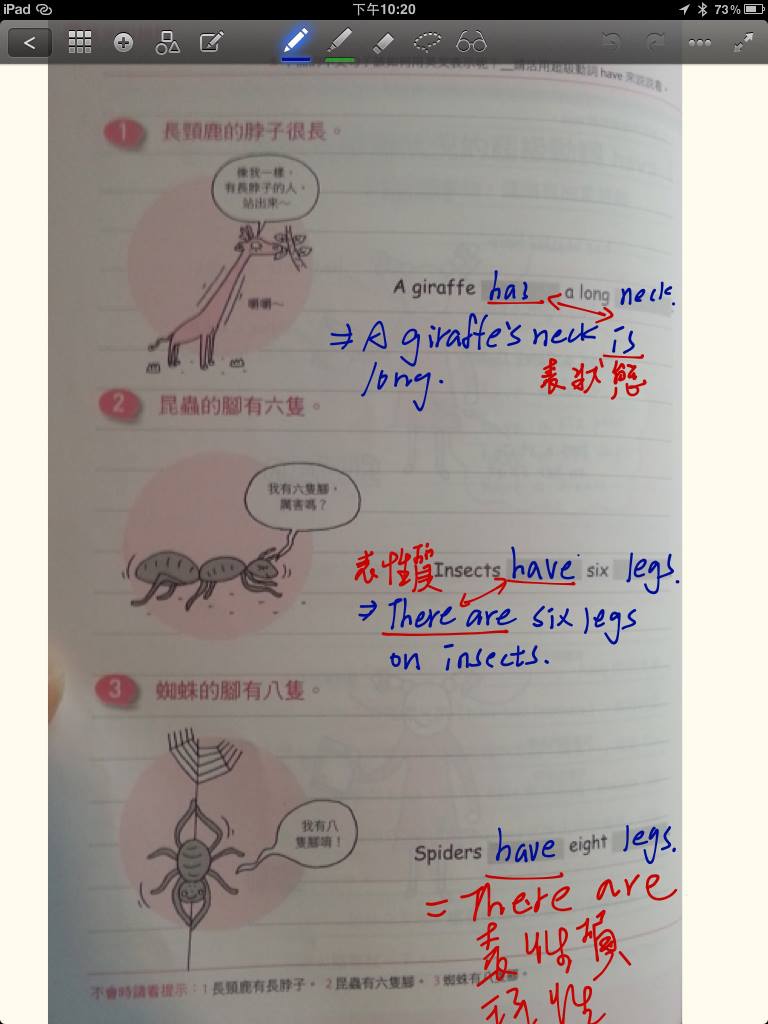 iPad 下午10:20 73%
動詞 have 來說說看。
1 長頸鹿的脖子很長。
像我一樣,
有長脖子的人,
站出來~
嚼嚼~
A giraffe has a long neck.
⇒ A giraffe's neck is
long.
表狀態
2 昆蟲的腳有六隻。
我有六隻腳,
厲害嗎?
表性質 Insects have six legs.
⇒ There are six legs
on insects.
3 蜘蛛的腳有八隻。
我有八
隻腳唷!
Spiders have eight legs.
= There are
表性質
不會時請看提示:1 長頸鹿有長脖子。 2 昆蟲有六隻腳。 3 蜘蛛有八隻腳。